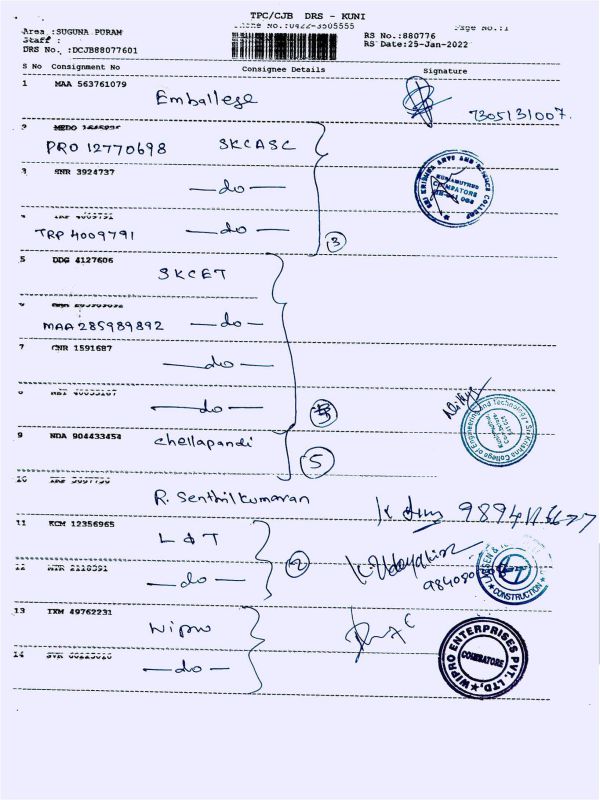 TPC/CJB DRS - KUNI
Phone No.:0422-3505555 Page No.:1
Area :SUGUNA PURAM RS No.:880776
Staff :
DRS No.:DCJB88077601 RS Date:25-Jan-2022
S No Consignment No Consignee Details Signature
1 MAA 563761079
Emballege 7305131007.
2
PRO 12770698 SKCASC
3 SNR 3924737
—do—
4 TRP 4009791
TRP 4009791 —do—
3
5 DDG 4127606
SKCET
6
MAA 285989892 —do—
7 CNR 1591687
—do—
8
—do—
9 NDA 904433454 chellapandi
5
10
R. Senthilkumaran
11 KCM 12356965
L&T
2
12 2118391
—do— CONSTRUCTION
13 TXM 49762231
Wipro
WIPRO ENTERPRISES PVT. LTD, COIMBATORE
14
—do—
SRI KRISHNA ARTS AND SCIENCE COLLEGE
KUNIAMUTHUR
COIMBATORE
Sri Krishna College of Engineering and Technology